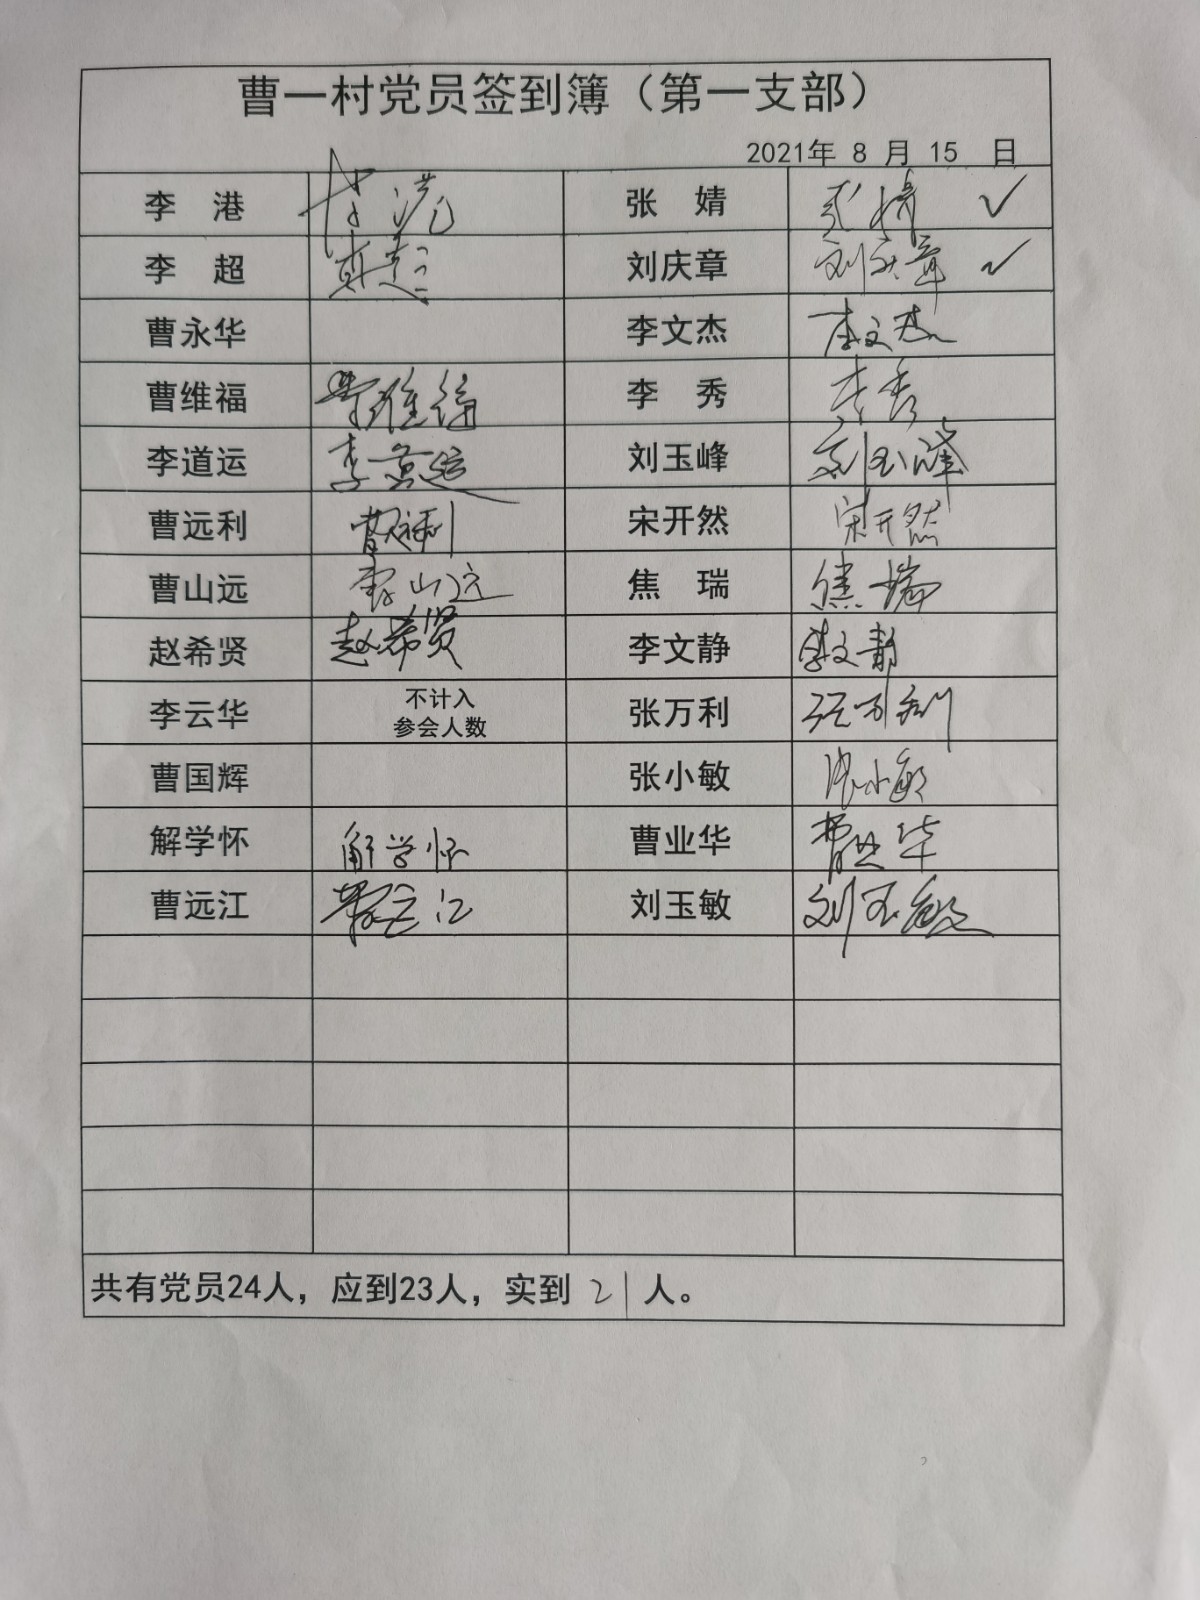 曹一村党员签到簿（第一支部）
2021年 8 月 15 日
李 港 李港 张 婧 张婧 ✓
李 超 李超 刘庆章 刘庆章 ✓
曹永华 李文杰 李文杰
曹维福 曹维福 李 秀 李秀
李道运 李道运 刘玉峰 刘玉峰
曹远利 曹远利 宋开然 宋开然
曹山远 曹山远 焦 瑞 焦瑞
赵希贤 赵希贤 李文静 李文静
李云华 不计入 张万利 张万利
参会人数
曹国辉 张小敏 张小敏
解学怀 解学怀 曹业华 曹业华
曹远江 曹远江 刘玉敏 刘玉敏
共有党员24人，应到23人，实到 21 人。